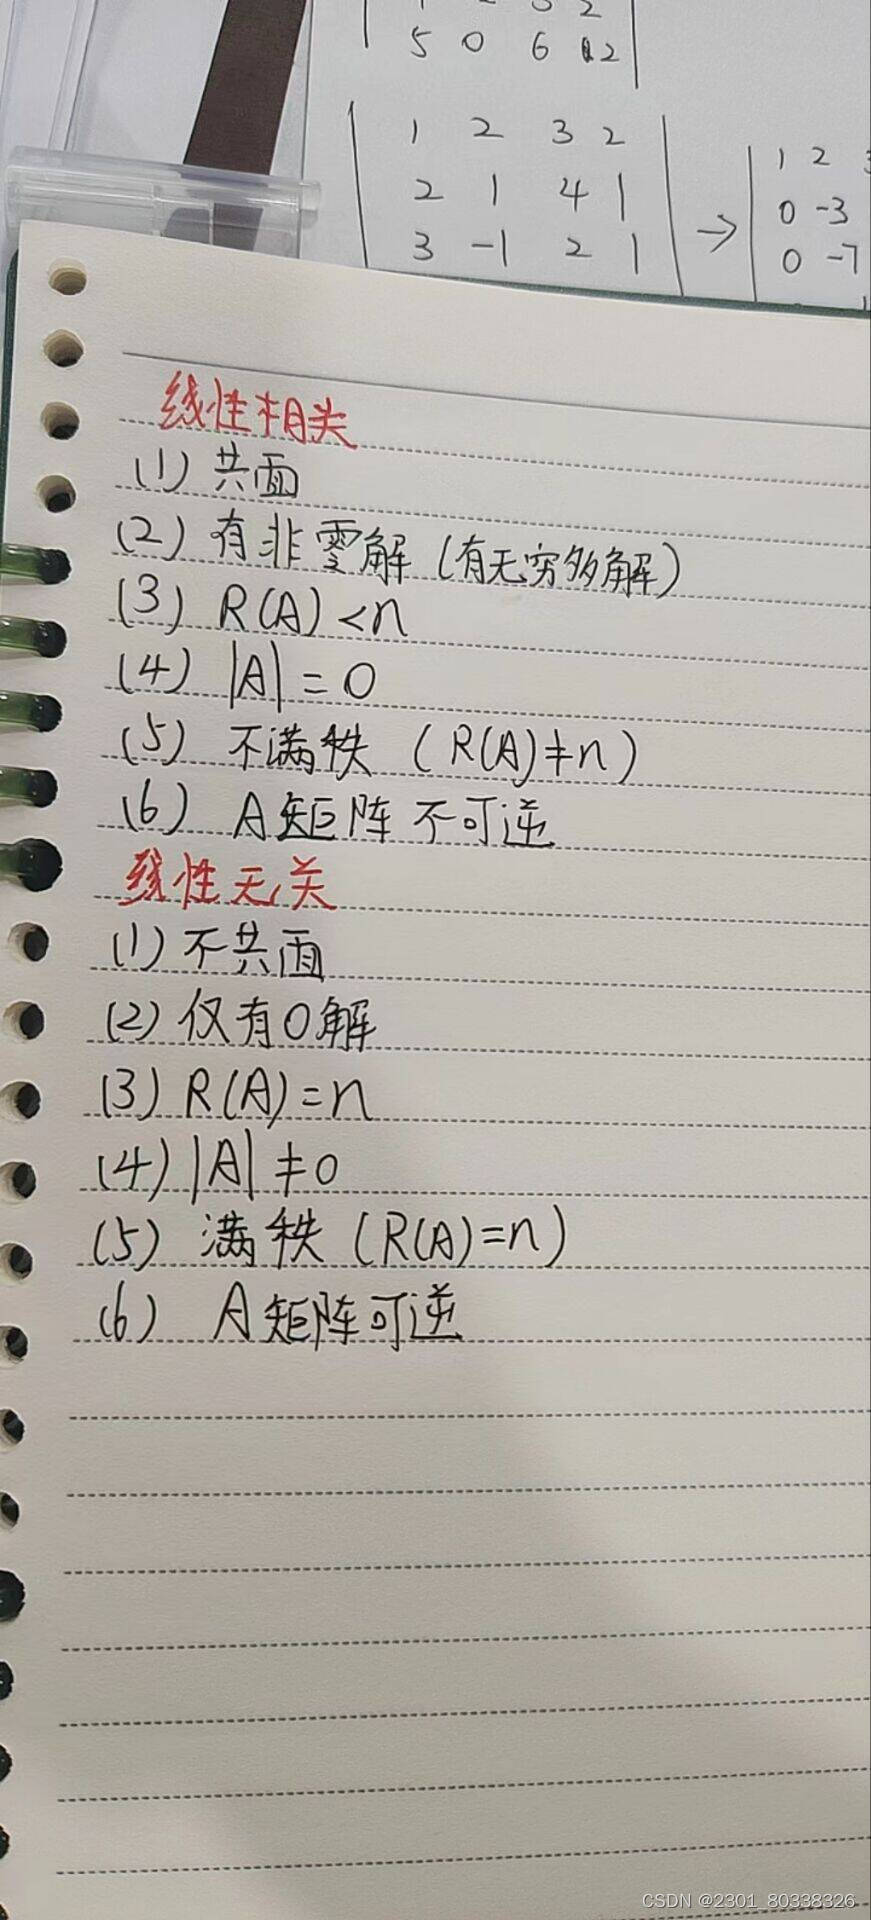 5 0 6 12
1 2 3 2
2 1 4 1
3 -1 2 1
→
1 2
0 -3
0 -7
线性相关
(1) 共面
(2) 有非零解 (有无穷多解)
(3) R(A) <n
(4) |A| = 0
(5) 不满秩 (R(A)≠n)
(6) A矩阵 不可逆
线性无关
(1) 不共面
(2) 仅有0解
(3) R(A)=n
(4) |A| ≠0
(5) 满秩 (R(A)=n)
(6) A矩阵可逆
CSDN @2301_80338326